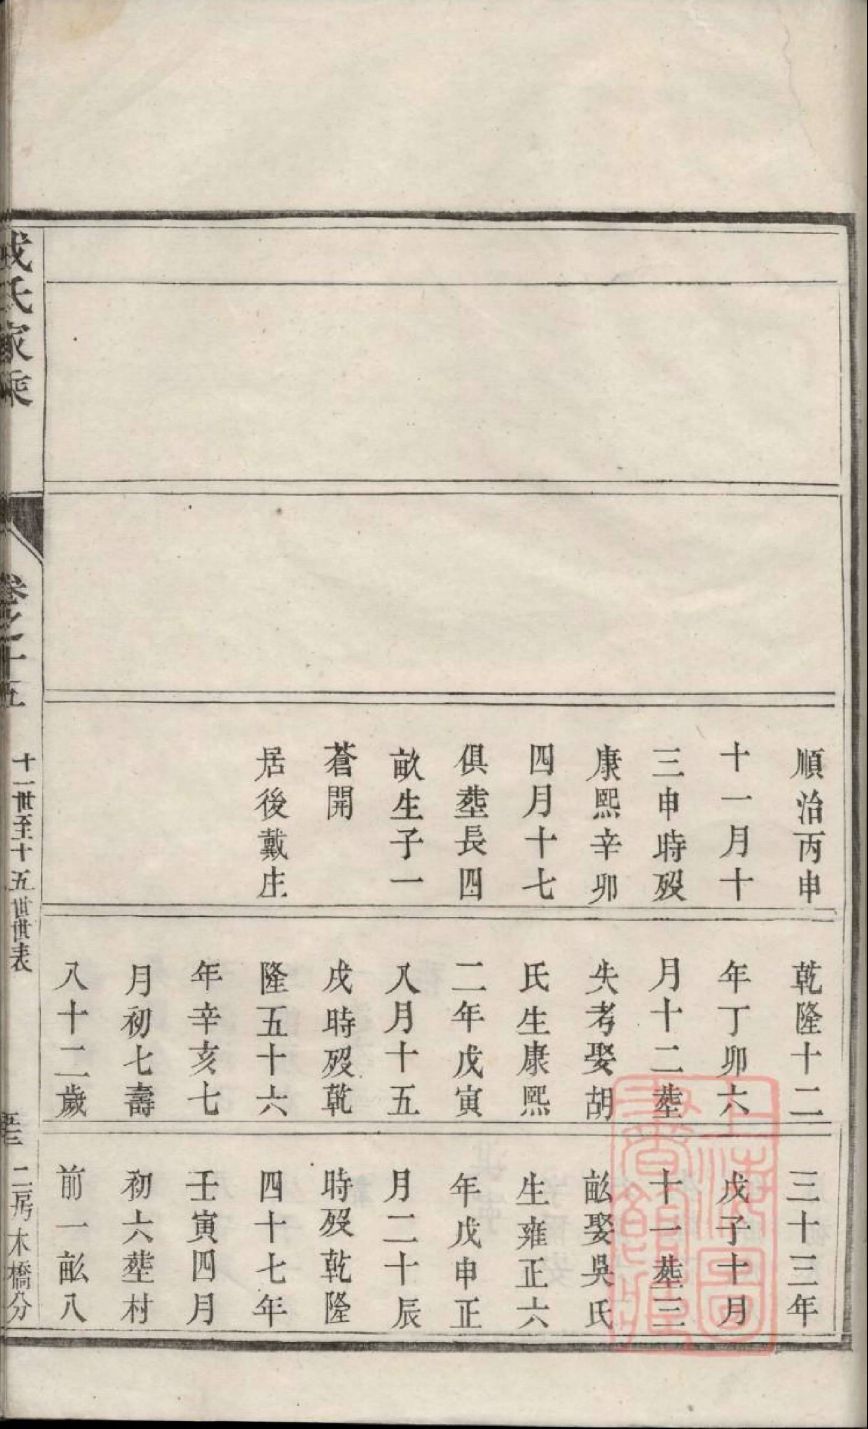 順治丙申
十一月十
三申時歿
康熙辛卯
四月十七
俱塟長四
畝生子一
蒼開
居後戴庄
乾隆十二
年丁卯六
月十二塟
失考娶胡
氏生康熙
二年戊寅
八月十五
戌時歿乾
隆五十六
年辛亥七
月初七壽
八十二歲
三十三年
戊子十月
十一塟三
畝娶吳氏
生雍正六
年戊申正
月二十辰
時歿乾隆
四十七年
壬寅四月
初六塟村
前一畝八
氏家乘
卷之十五
十一世至十五世世表
二房木橋分
上海圖書館藏